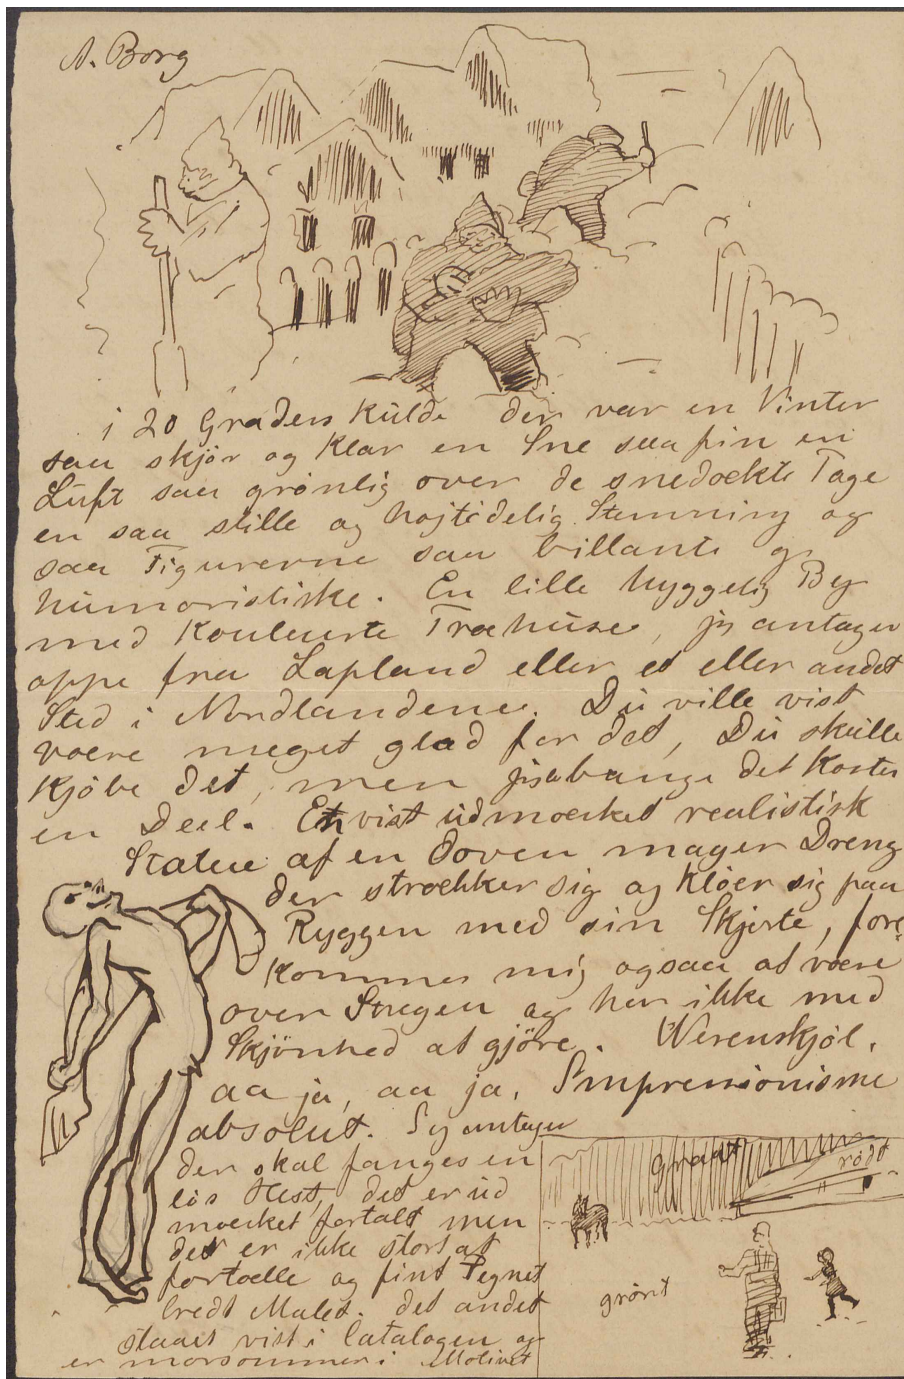 A. Borg
i 20 Graders Kulde der var en Vinter
saa skjör og Klar en Sne saa fin en
Luft saa grønlig over de snedækte Tage
en saa stille og højtidelig Stemning og
saa Figurerne saa billante og
humoristiske. En lille hyggelig By
med Kouleurte Træhuse, jeg antager
oppe fra Lapland eller et eller andet
Sted i Nordlandene. Du ville vist
være meget glad for det, Du skulde
Kjöbe det, men jeg bange det Koster
en Deel. Et vist udmærket realistisk
Statue af en doven mager Dreng
der strækker sig og Klöer sig paa
Ryggen med sin Skjorte, fore-
kommer mig ogsaa at være
over Stregen og har ikke med
Skjönhed at gjöre. Werenskjöl.
aa ja, aa ja, Impressionisme
absolut. Jeg antager
der skal fanges en
lös Hest, det er ud
mærket fortalt men
det er ikke stort at
fortælle og fint Tegnet
bredt Malet. det andet
staaer vist i Catalogen og
er morsommer i Motivet
graat
rødt
grønt